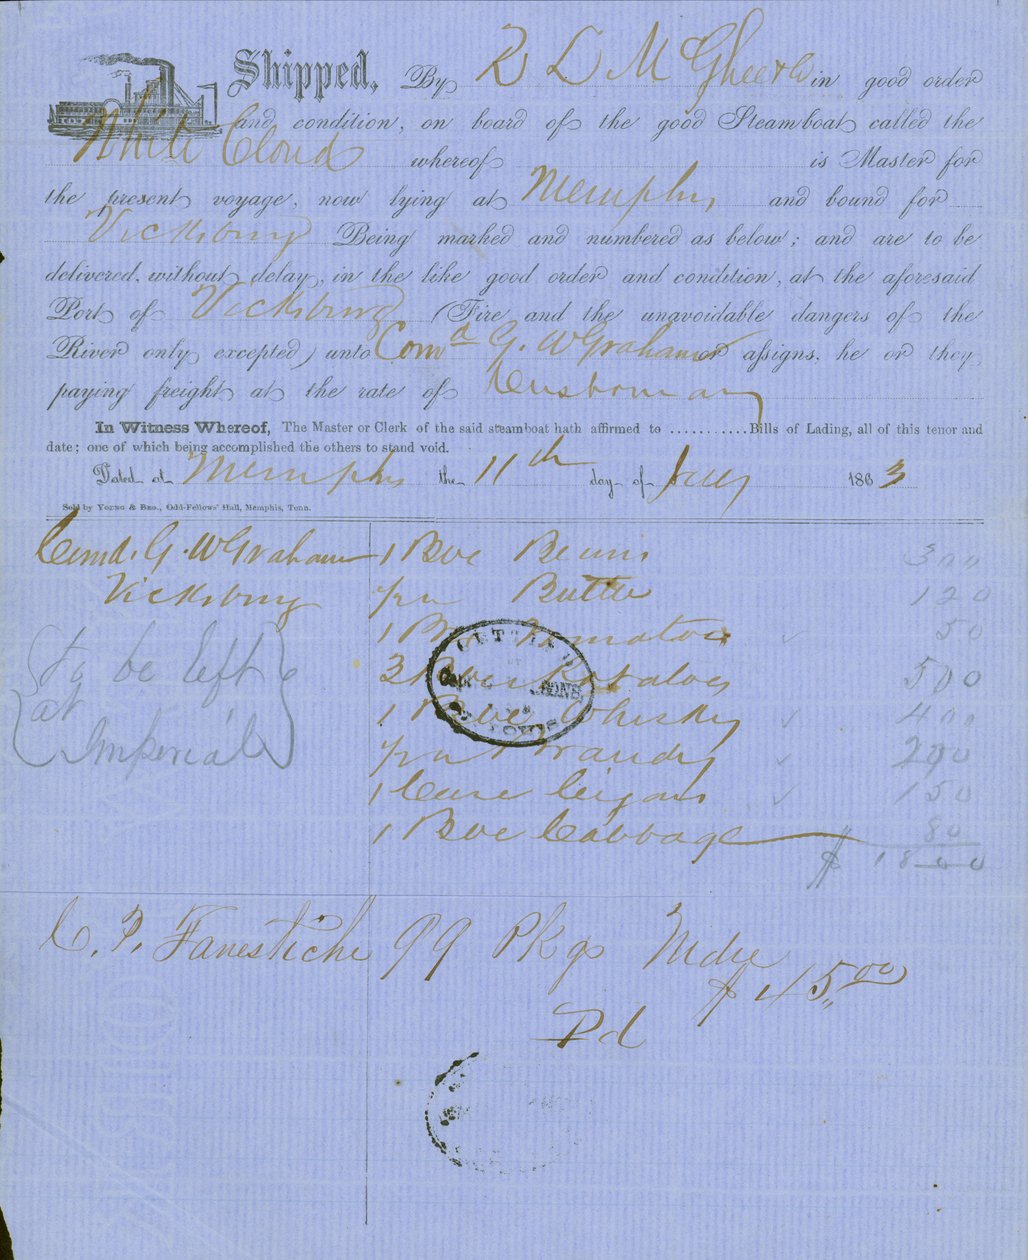 Shipped, By R L McGhee & Co in good order
and condition, on board of the good Steamboat called the
White Cloud whereof is Master for
the present voyage, now lying at Memphis and bound for
Vicksburg Being marked and numbered as below; and are to be
delivered, without delay, in the like good order and condition, at the aforesaid
Port of Vicksburg (Fire and the unavoidable dangers of the
River only excepted) unto Comd G. W Graham or assigns. he or they
paying freight at the rate of Customary
In Witness Whereof, The Master or Clerk of the said steamboat hath affirmed to ........... Bills of Lading, all of this tenor and
date; one of which being accomplished the others to stand void.
Dated at Memphis the 11th day of July 1863
Sold by Young & Bro., Odd-Fellows' Hall, Memphis, Tenn.
Comd. G. W Graham 1 Box Beans 300
Vicksburg Butter 120
1 Box Tomatoes 50
To be left 3 Potatoes 500
at 1 Whisky 400
Imperial Brandy 200
1 Case Cigars 150
1 Box Cabbage 80
$ 1800
C. P. 99 Pkgs Mdse
$ 45,00
Pd